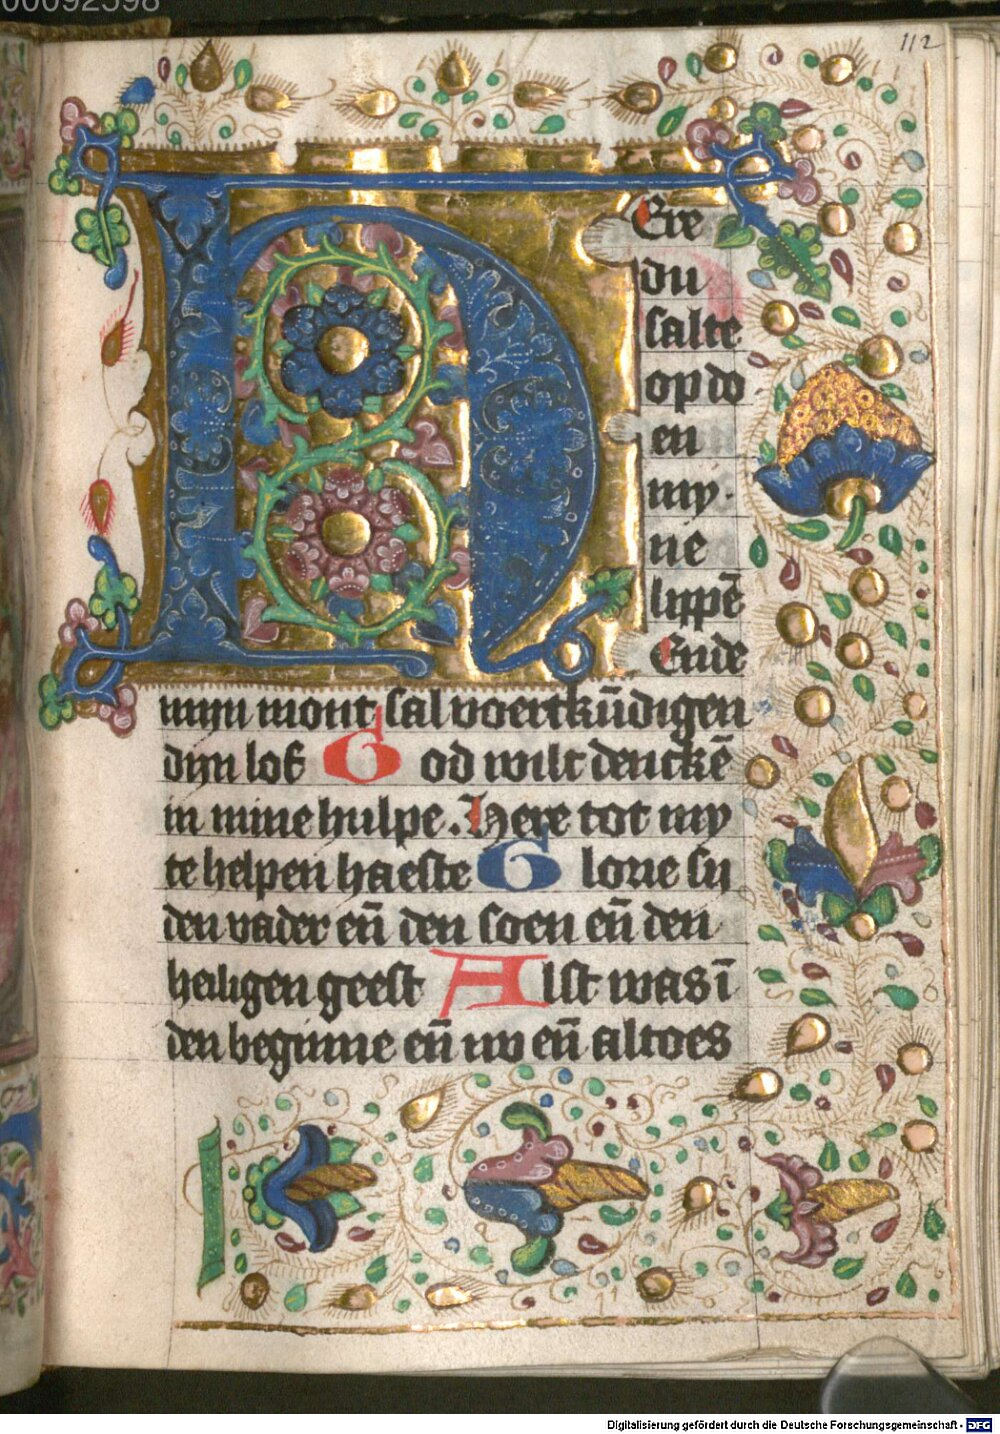 00092598
112
HEre
du
salte
op do
en
my
ne
lippē
Ende
mijn mont sal voertkūdigen
dijn lof God wilt denckē
in mine hulpe. Here tot my
te helpen haeste Glorie sij
den vader eñ den soen eñ den
heiligen geest Alst was ī
den beginne eñ nv eñ altoes
Digitalisierung gefördert durch die Deutsche Forschungsgemeinschaft - DFG